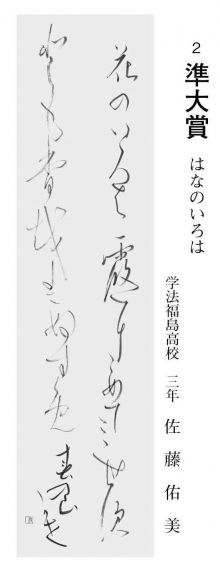 2 準大賞 はなのいろは
学法福島高校 三年 佐藤佑美
花のいろは霞にこめてみせ須
とも香越にぬす免 春